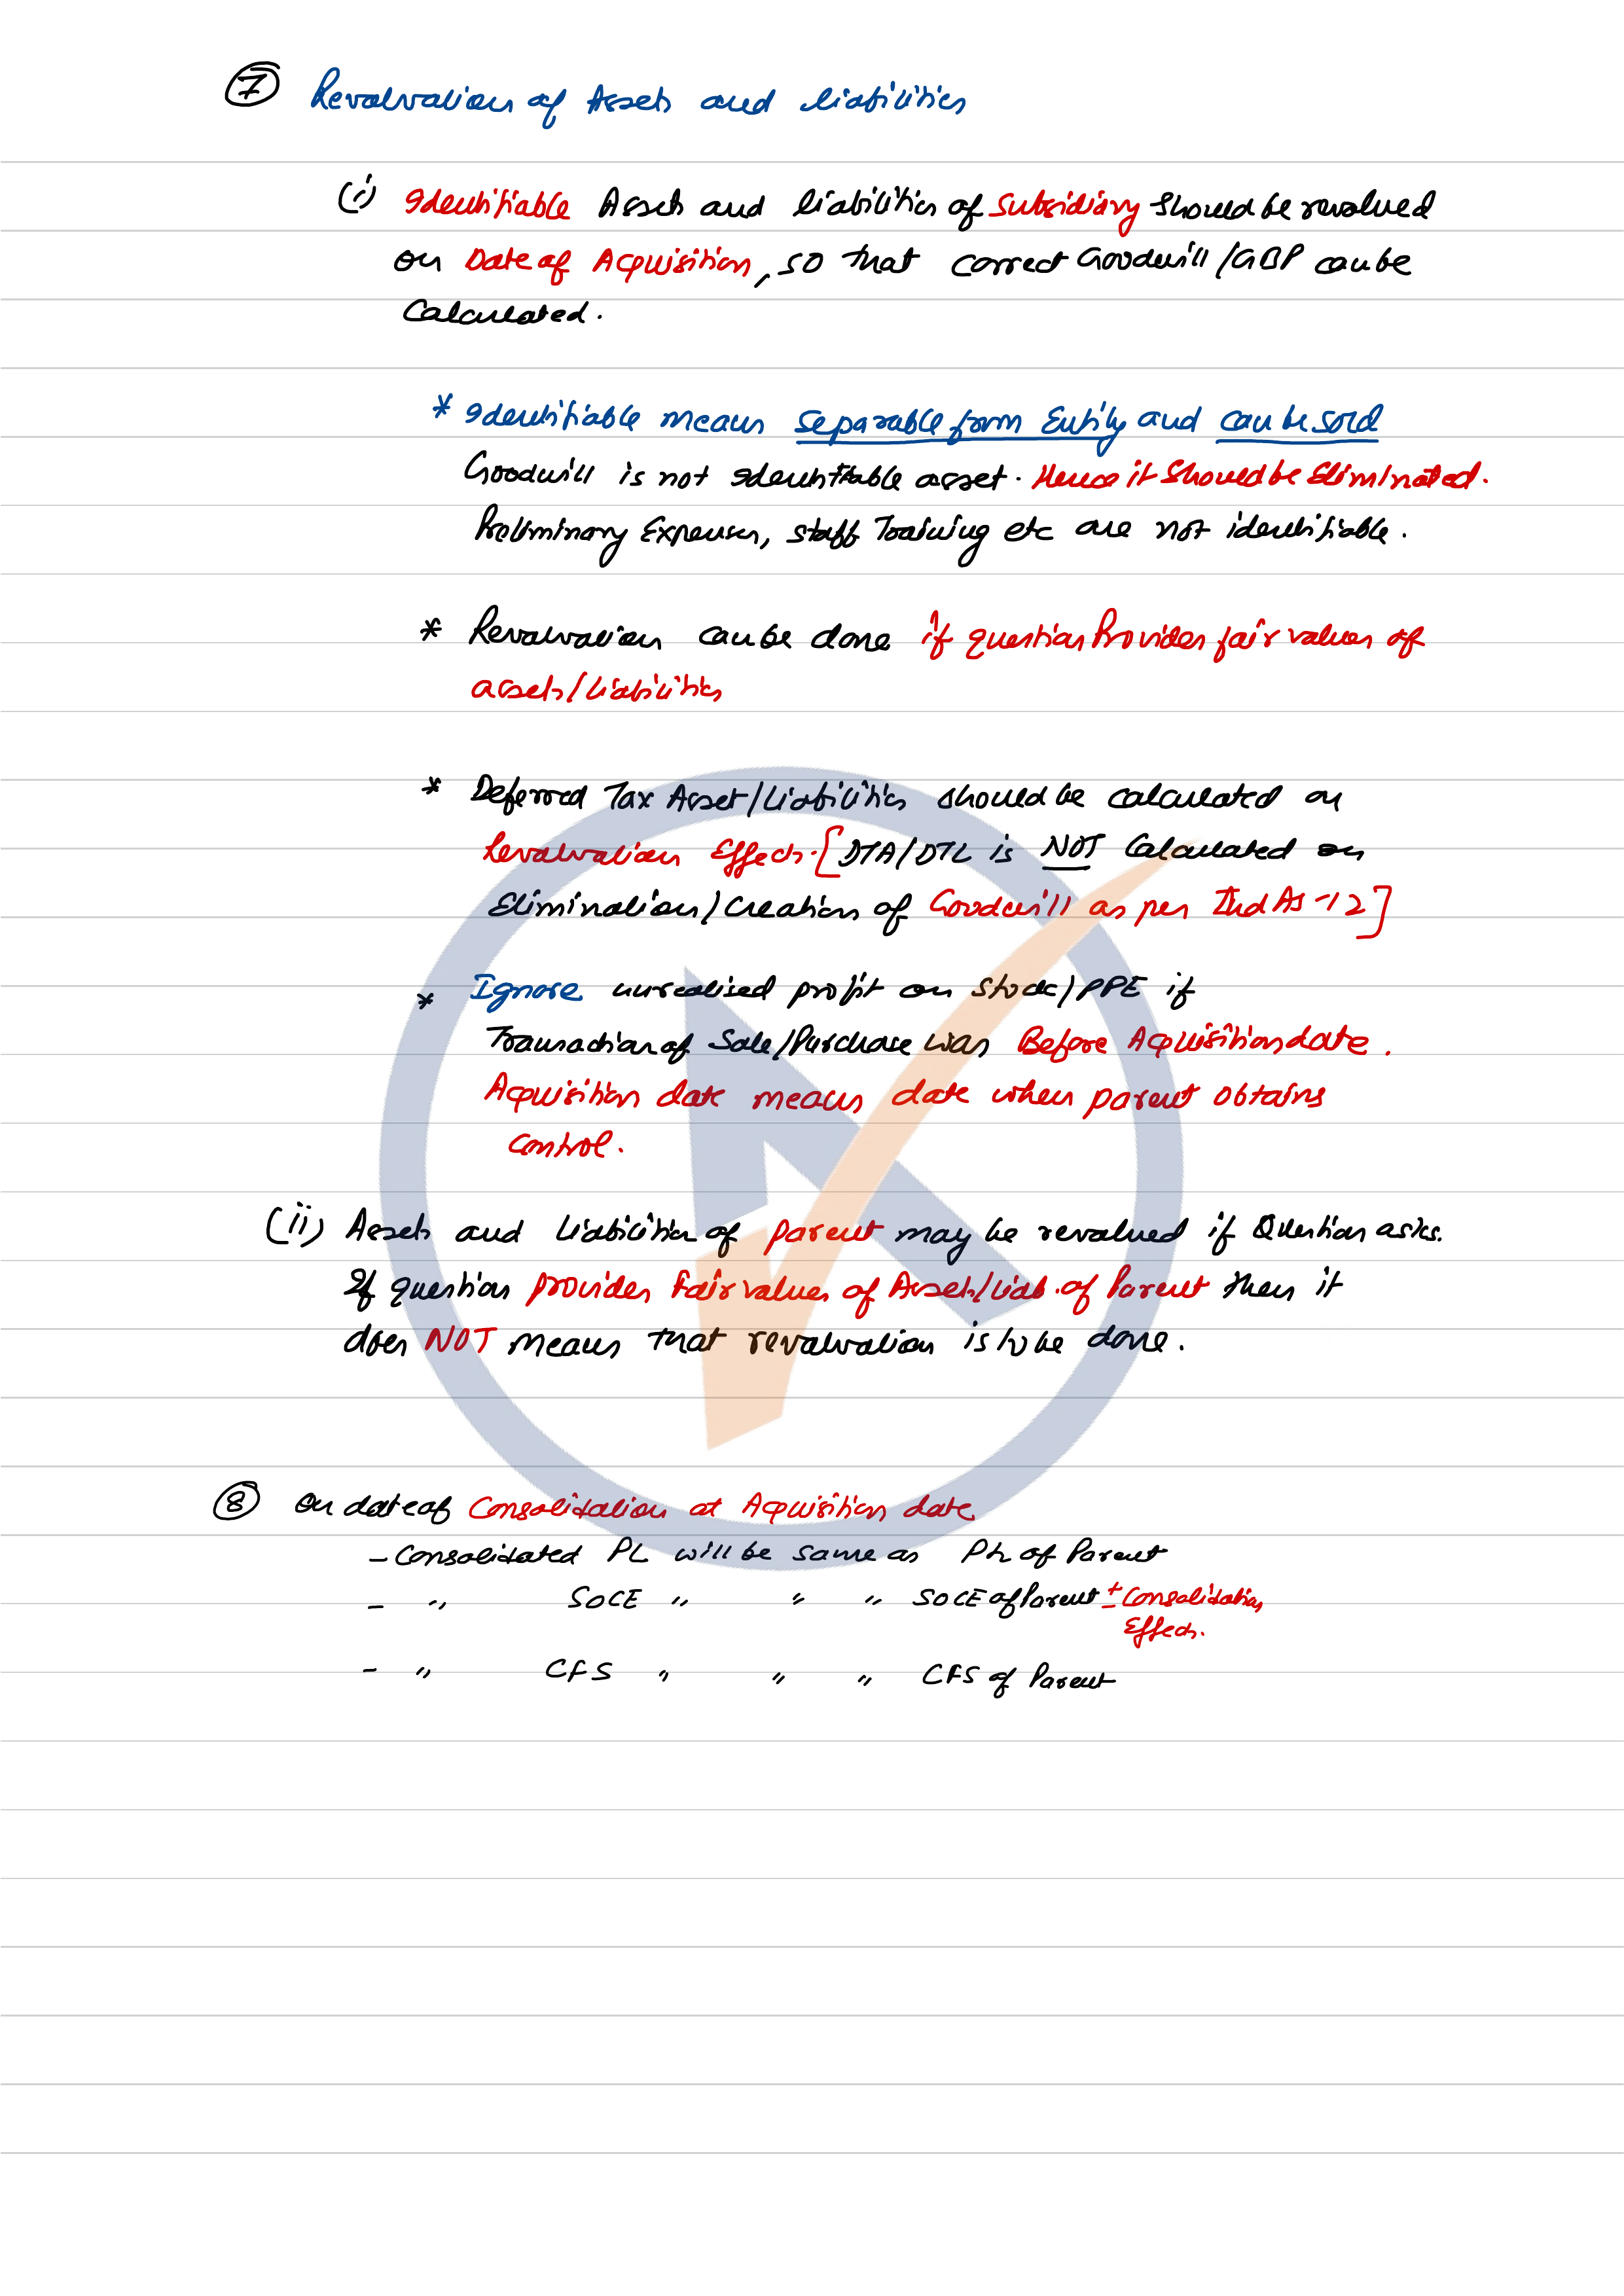 7 Revaluation of Assets and Liabilities
(i) Identifiable Assets and liabilities of Subsidiary should be revalued
on Date of Acquisition, so that correct Goodwill/GBP can be
Calculated.
* Identifiable means separable from Entity and can be sold
Goodwill is not Identifiable asset. Hence it should be Eliminated.
Preliminary Expenses, staff Training etc are not identifiable.
* Revaluation can be done if question Provides fair values of
assets/liabilities
* Deferred Tax Asset/Liabilities should be calculated on
Revaluation Effects. [DTA/DTL is NOT Calculated on
Elimination/Creation of Goodwill as per Ind AS-12]
* Ignore unrealised profit on Stock/PPE if
Transaction of Sale/Purchase was Before Acquisition date.
Acquisition date means date when parent obtains
control.
(ii) Assets and Liabilities of parent may be revalued if Question asks.
If question provides Fair values of Assets/Liab. of Parent then it
does NOT means that revaluation is to be done.
8 On date of Consolidation at Acquisition date
- Consolidated PL will be same as PL of Parent
- " SOCE " " " SOCE of Parent ± Consolidation
Effects.
- " CFS " " " CFS of Parent